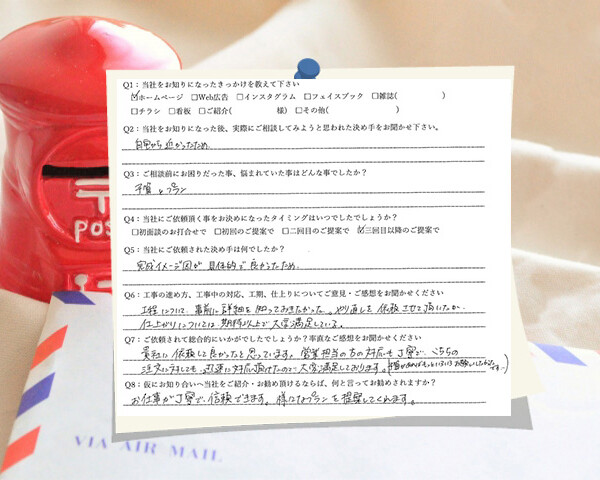 Q1：当社をお知りになったきっかけを教えて下さい
☑ホームページ □Web広告 □インスタグラム □フェイスブック □雑誌( )
□チラシ □看板 □ご紹介( 様) □その他( )
Q2：当社をお知りになった後、実際にご相談してみようと思われた決め手をお聞かせ下さい。
自宅から近かったため
Q3：ご相談前にお困りだった事、悩まれていた事はどんな事でしたか？
予算 プラン
Q4：当社にご依頼頂く事をお決めになったタイミングはいつでしたでしょうか？
□初面談のお打合せで □初回のご提案で □二回目のご提案で ☑三回目以降のご提案で
Q5：当社にご依頼された決め手は何でしたか？
完成イメージ図が具体的で良かったため
Q6：工事の進め方、工事中の対応、工期、仕上りについてご意見・ご感想をお聞かせください
工程について、事前に詳細を知っておきたかった。やり直しを依頼させて頂いたが
仕上がりについては期待以上で大変満足している。
Q7：ご依頼されて総合的にいかがでしたでしょうか？率直なご感想をお聞かせください
貴社に依頼して良かったと思っています。営業担当の方の対応も丁寧で、こちらの
注文に対しても、迅速に対応頂けたので大変満足しております。
Q8：仮にお知り合いへ当社をご紹介・お勧め頂けるならば、何と言ってお勧めされますか？
お仕事が丁寧で、信頼できます。様々なプランを提案してくれます。
POS
VIA AIR MAIL